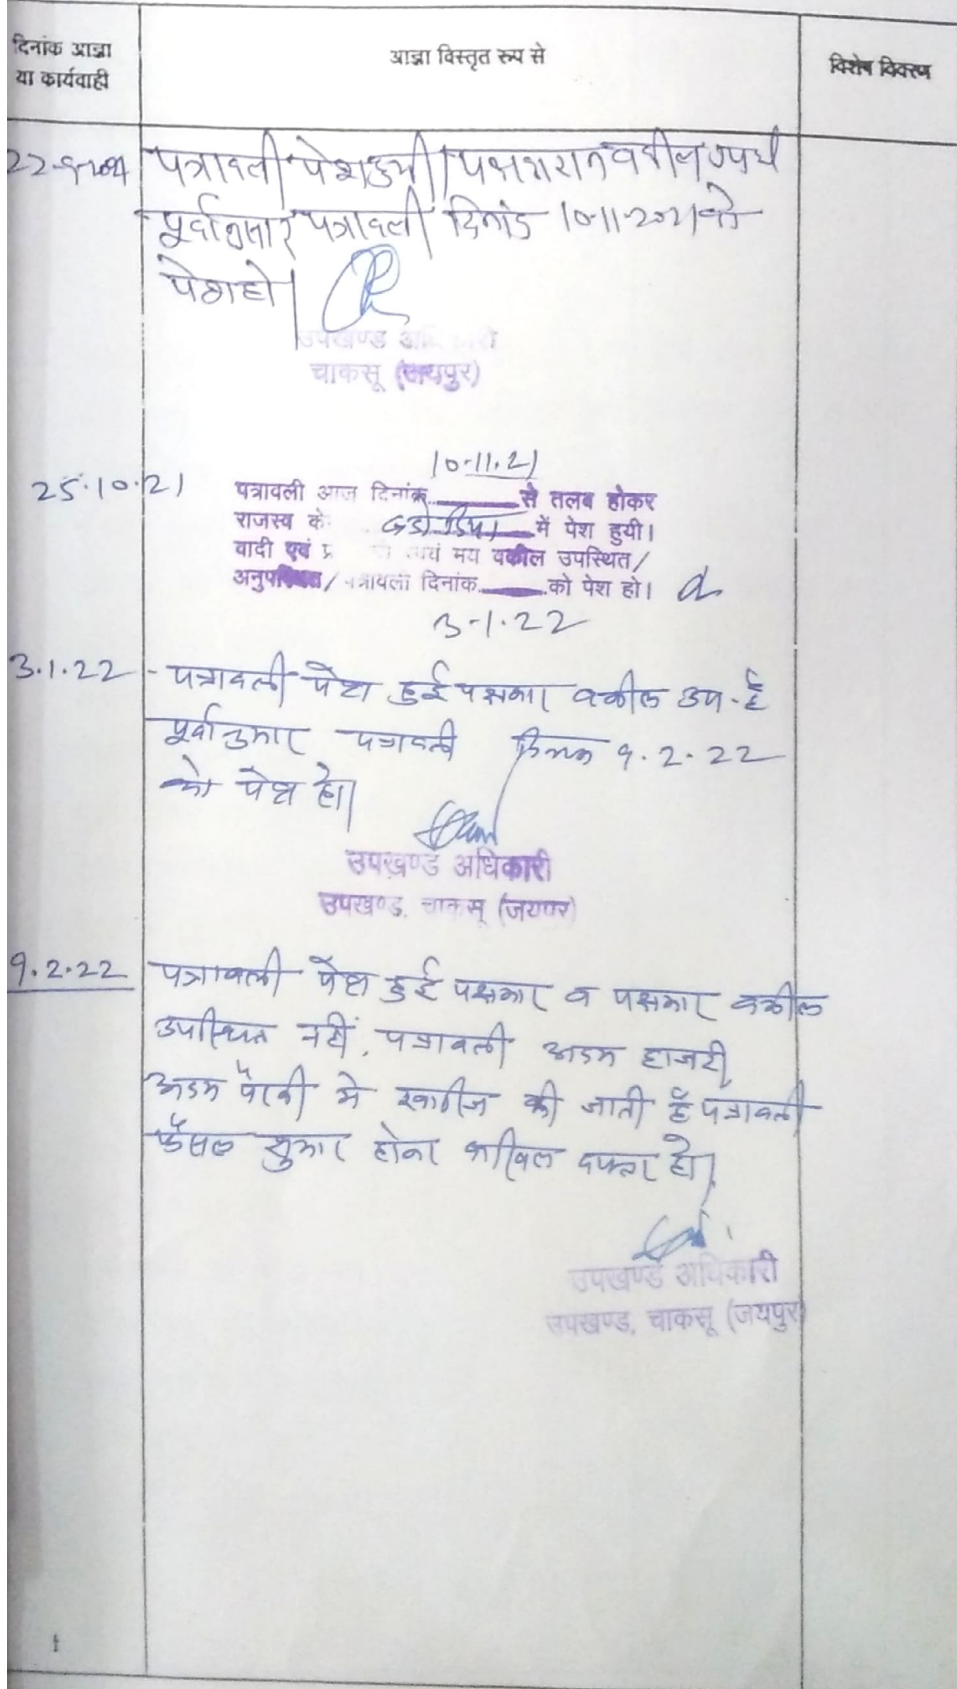 दिनांक आज्ञा
या कार्यवाही
आज्ञा विस्तृत रूप से
विशेष विवरण
पत्रावली पेश हुयी। पक्षगरान वकील
पूर्वानुसार पत्रावली दिनांक 10-11-2021 को
पेश हो।
उपखण्ड अधिकारी
चाकसू (जयपुर)
25.10.21
10.11.21
पत्रावली आज दिनांक से तलब होकर
राजस्व में पेश हुयी।
वादी एवं मय वकील उपस्थित/
अनुपस्थित/ पत्रावली दिनांक को पेश हो।
3-1-22
3.1.22 - पत्रावली पेश हुई पक्षकार वकील उप. है
पूर्वानुसार पत्रावली दिनांक 9.2.22
को पेश हो।
उपखण्ड अधिकारी
उपखण्ड, चाकसू (जयपुर)
9.2.22 पत्रावली पेश हुई पक्षकार व पक्षकार वकील
उपस्थित नहीं, पत्रावली अदम हाजरी
अदम पैरवी मे खारीज की जाती है पत्रावली
फैसल शुमार होकर दाखिल दफ्तर हो।
उपखण्ड अधिकारी
उपखण्ड, चाकसू (जयपुर)